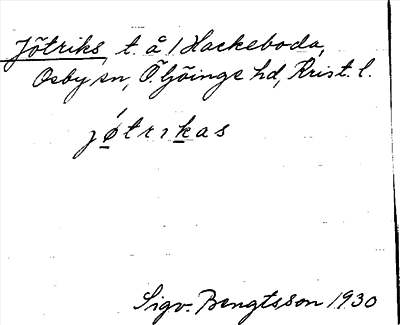 Jötriks, t. å. 1 Hackeboda,
Osby sn, Ö Göinge hd, Krist. l.
jǿtrıkas
Sigv. Bengtsson 1930